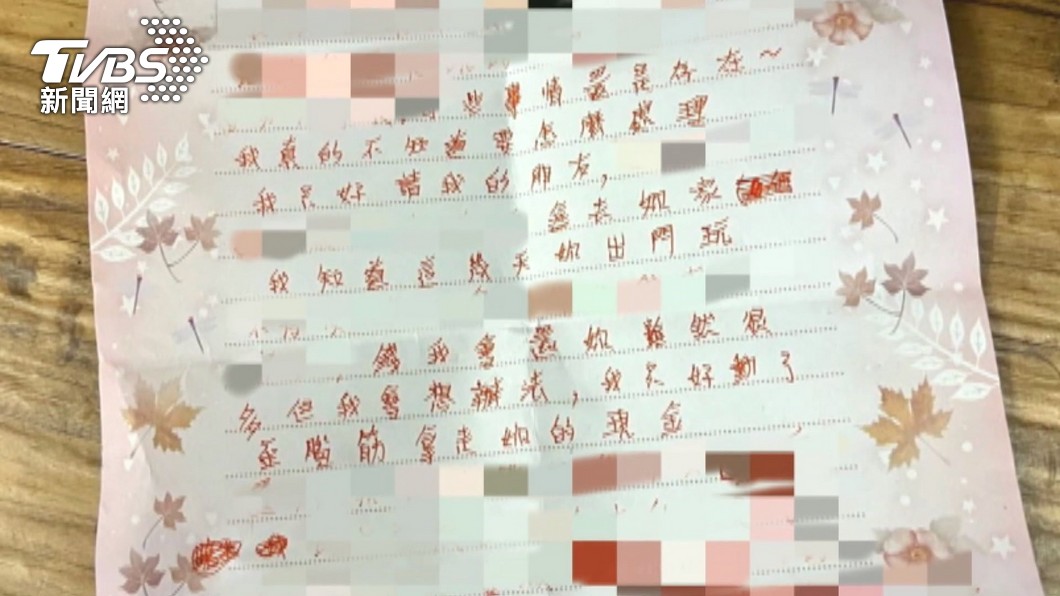 TVBS
新聞網
事情還是存在～
我真的不知道要怎麼處理
我只好請我的朋友,
拿走妳家
我知道這幾天妳出門玩
錢我會還妳雖然很
多但我會想辦法,我只好動了
歪腦筋拿走妳的現金